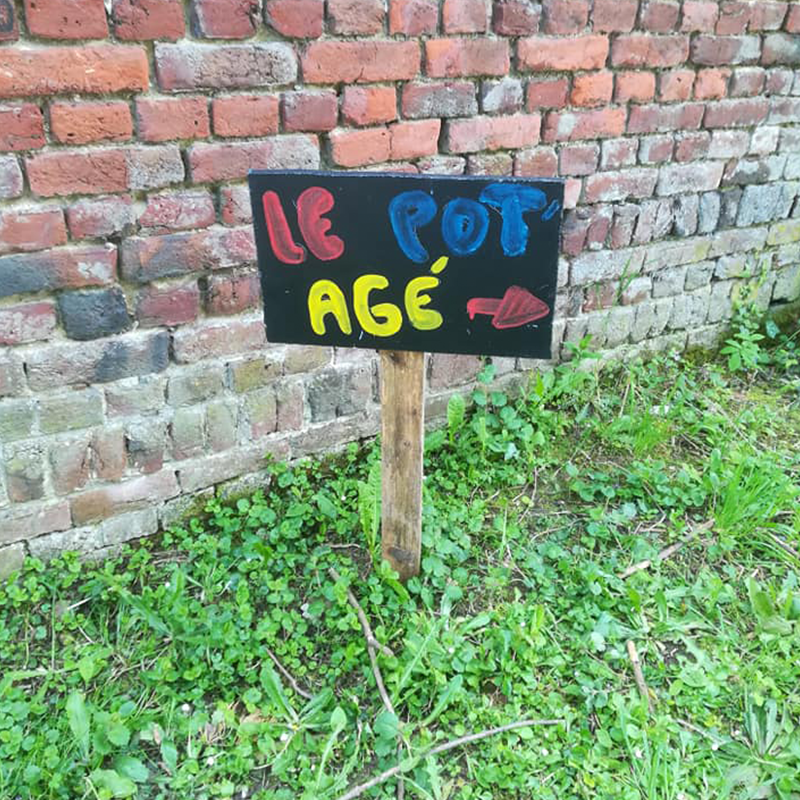 LE POT'
AGÉ